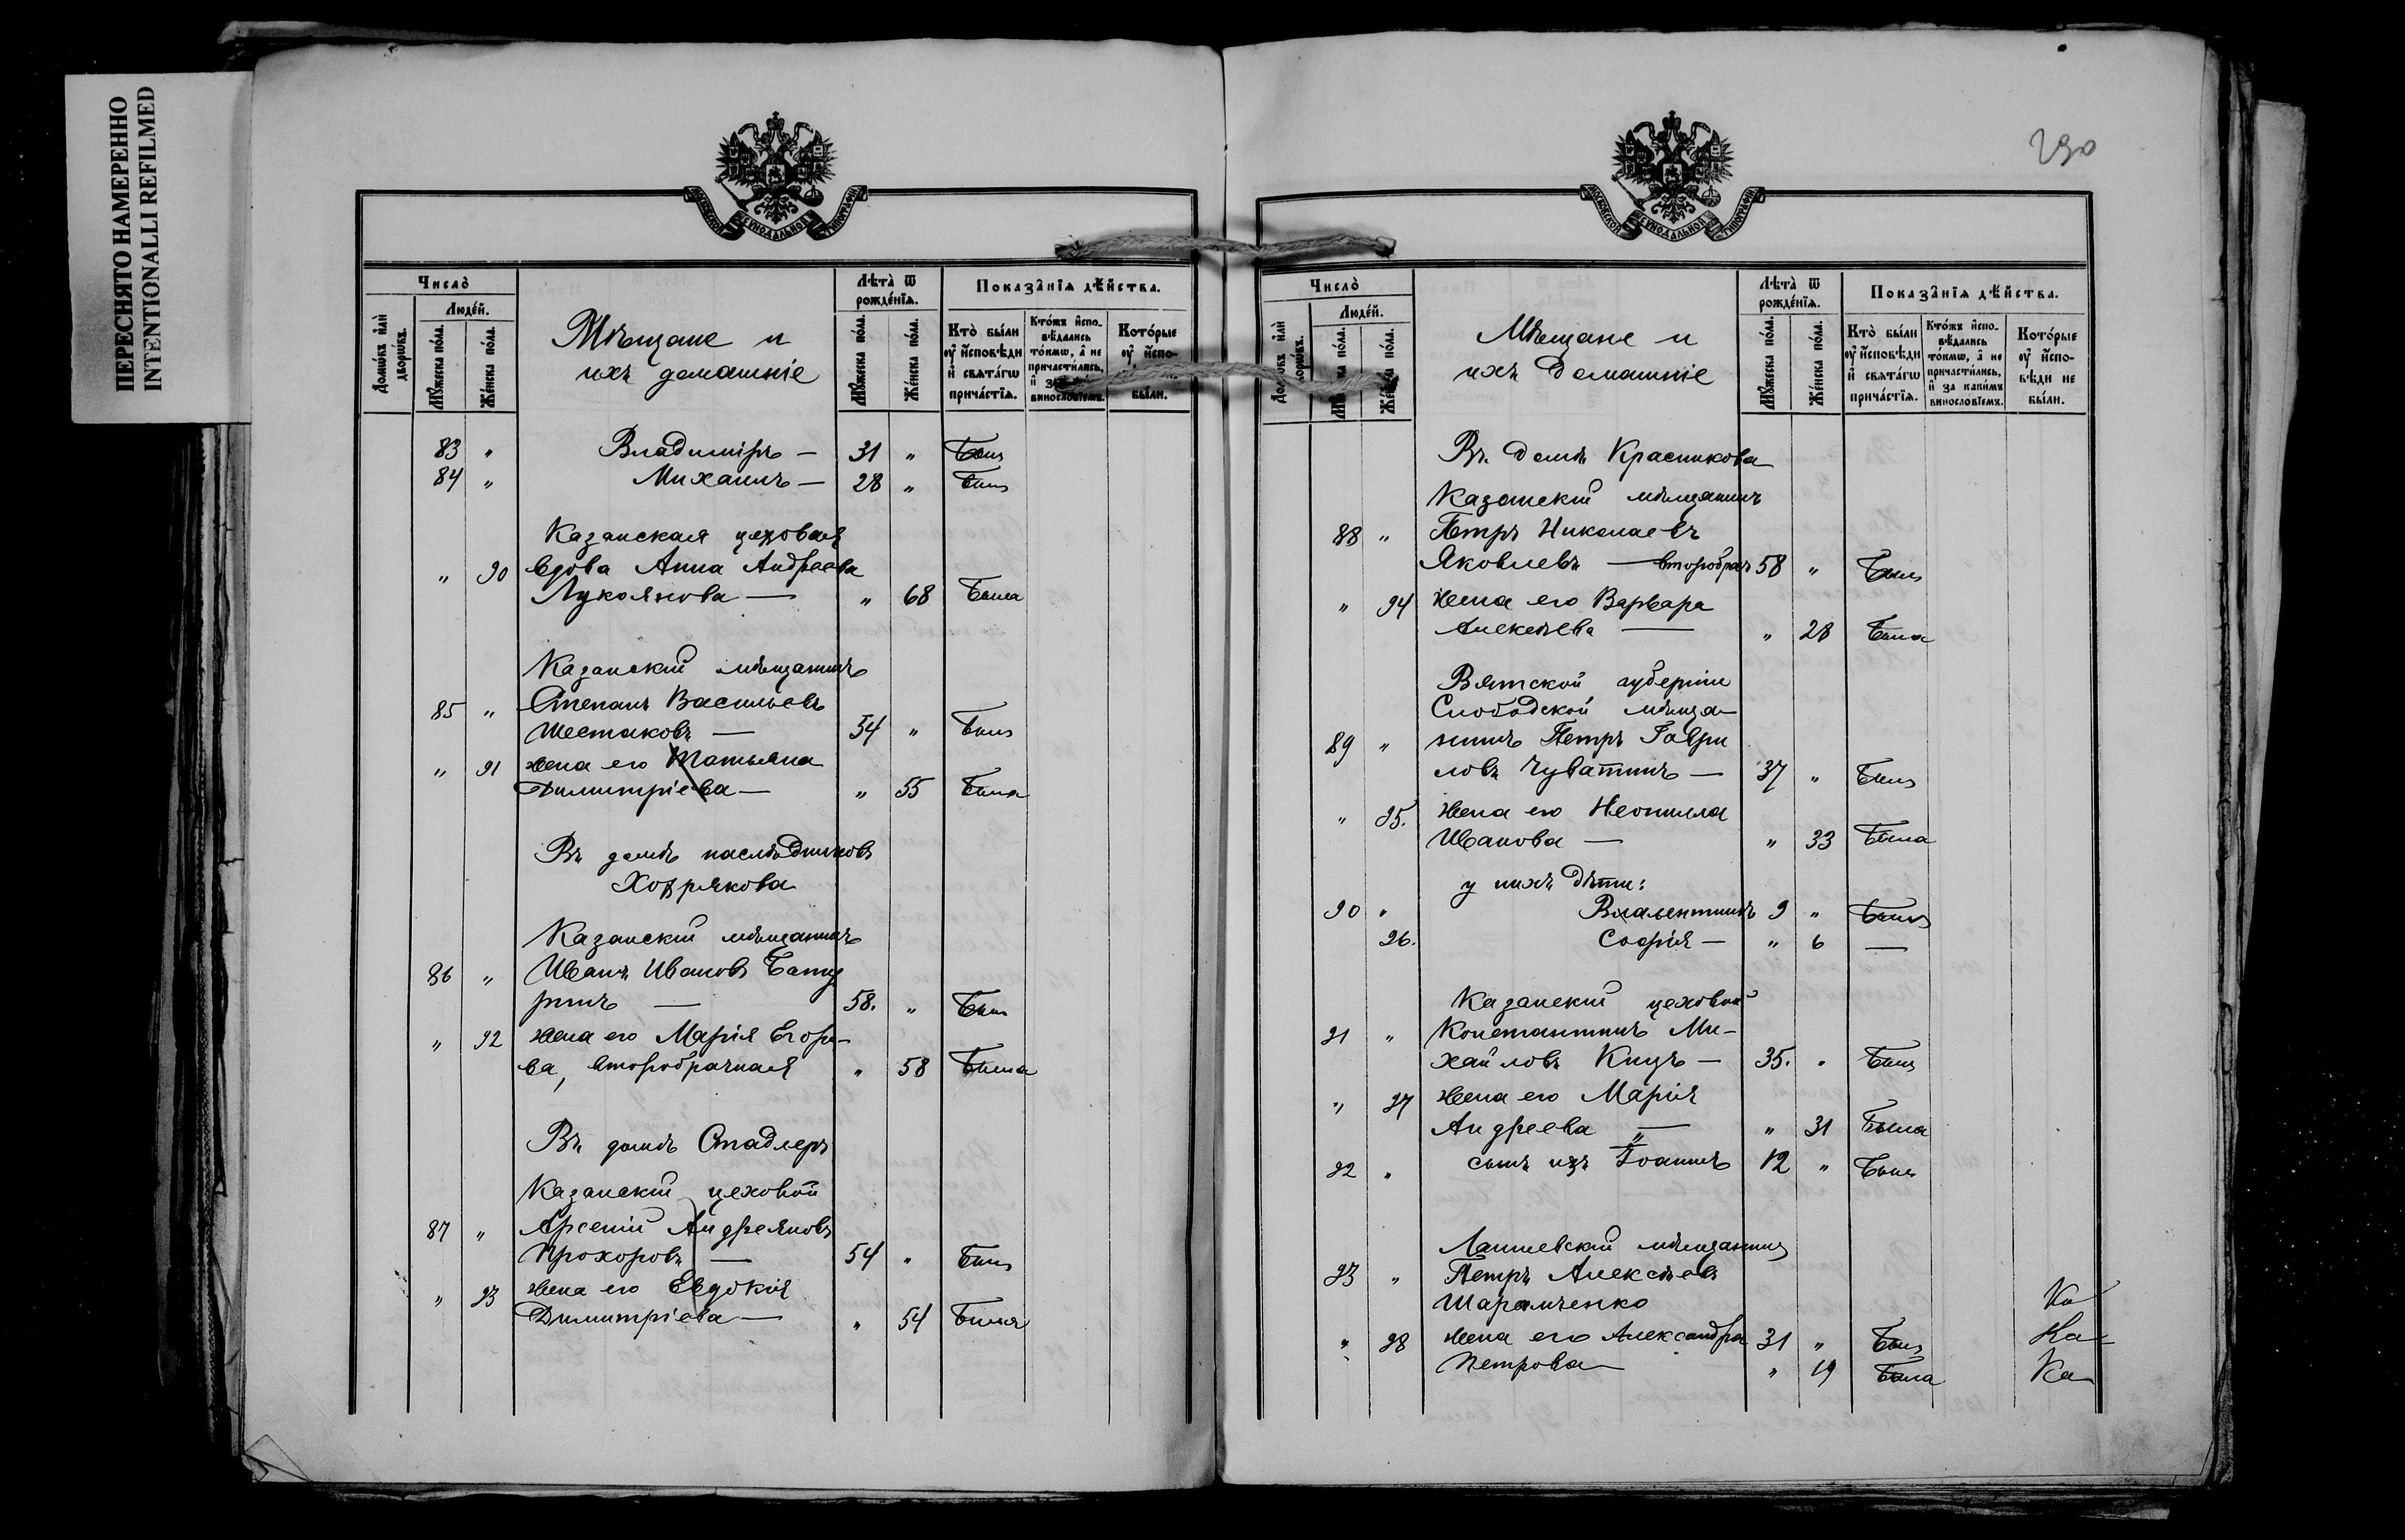 ПЕРЕСНЯТО НАМЕРЕННО
INTENTIONALLI REFILMED
МОСКОВСКОЙ СѴНОДАЛЬНОЙ ТИПОГРАФІИ
Число̀
Домѡ́въ и҆лѝ дворѡ́въ.
Люде́й.
Мꙋ́жеска по́ла.
Же́нска по́ла.
Мѣщане и
ихъ домашніе
Лѣта̀ ѿ рожде́нїѧ.
Мꙋ́жеска по́ла.
Же́нска по́ла.
Показа̂нїѧ дѣ́йства.
Кто̀ бы́ли ᲂу҆ и҆сповѣди и҆ свѧта́гѡ прича́стїѧ.
Кто́жъ и҆сповѣдались то́кмѡ, а҆ не причасти́лись, и҆ за винослові́емъ.
Кото́рые ᲂу҆ и҆спо- бы́ли.
83 " Владиміръ — 31 " Былъ
84 " Михаилъ — 28 " Былъ
Казанская цеховая
" 90 вдова Анна Андреева
Лукоянова — " 68 Была
Казанскій мѣщанинъ
85 " Степанъ Васильевъ
Шестаковъ — 54 " Былъ
" 91 жена его Татьяна
Димитріева — " 55 Была
Въ домѣ наслѣдниковъ
Хохрякова
Казанскій мѣщанинъ
86 " Иванъ Ивановъ Бату
ринъ — 58. " Былъ
" 92 жена его Марія Егоро-
ва, второбрачная " 58 Была
Въ домѣ Стадлеръ
Казанскій цеховой
87 " Арсеній Андреяновъ
Прохоровъ — 54 " Былъ
" 93 жена его Евдокія
Димитріева — " 54 Была
290
МОСКОВСКОЙ СѴНОДАЛЬНОЙ ТИПОГРАФІИ
Число̀
Люде́й.
Мѣщане и
ихъ домашніе
Лѣта̀ ѿ рожде́нїѧ.
Мꙋ́жеска по́ла.
Же́нска по́ла.
Показа̂нїѧ дѣ́йства.
Кто̀ бы́ли ᲂу҆ и҆сповѣди и҆ свѧта́гѡ прича́стїѧ.
Кто́жъ и҆сповѣдались то́кмѡ, а҆ не причасти́лись, и҆ за каки́мъ винослові́емъ.
Кото́рые ᲂу҆ и҆сповѣди не бы́ли.
Въ домѣ Красикова
Казанскій мѣщанинъ
88 " Петръ Николаевъ
Яковлевъ — второбрач 58 " Былъ
" 94 жена его Варвара
Алексѣева — " 28 Была
Вятской губерніи
Слободской мѣща-
89 " нинъ Петръ Гаври
ловъ Чуватинъ — 37 " Былъ
" 95. жена его Неонилла
Иванова — " 33 Была
у нихъ дѣти:
90 " Валентинъ 9 " Былъ
96. Софія — " 6 —
Казанскій цеховой
91 " Константинъ Ми-
хайловъ Кицъ — 35. " Былъ
" 97 жена его Марія
Андреева — " 31 Была
92 " сынъ ихъ Іоаннъ 12 " Былъ
Лаишевскій мѣщанинъ
93 " Петръ Алексѣевъ
Шарамченко
" 98 жена его Александра 31 " Былъ
Петрова — " 19 Была
Ка
Ка
Ка